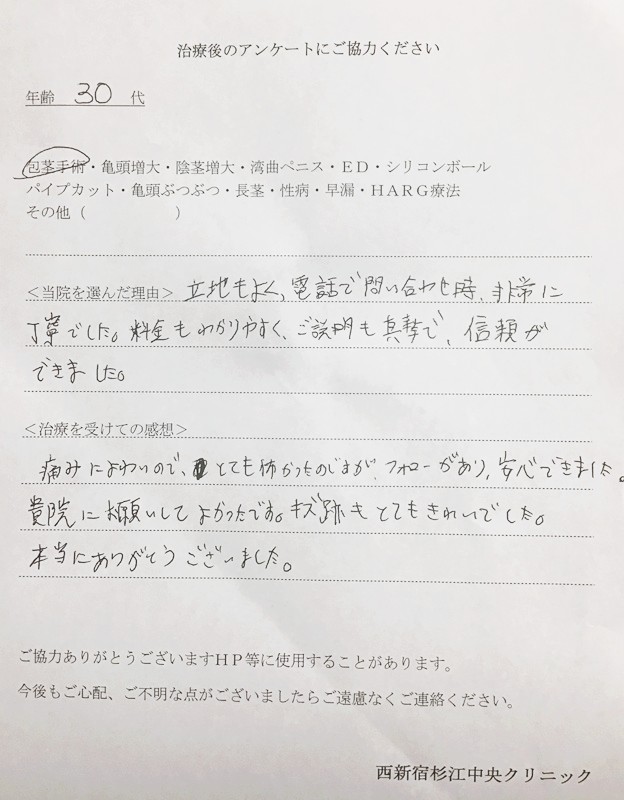 治療後のアンケートにご協力ください
年齢 30 代
包茎手術・亀頭増大・陰茎増大・湾曲ペニス・ED・シリコンボール
パイプカット・亀頭ぶつぶつ・長茎・性病・早漏・HARG療法
その他（ ）
＜当院を選んだ理由＞ 立地もよく、電話で問い合わせ時、非常に
丁寧でした。料金もわかりやすく、ご説明も真摯で、信頼が
できました。
＜治療を受けての感想＞
痛みによわいので、とても怖かったのですが、フォローがあり、安心できました。
貴院にお願いしてよかったです。キズ跡もとてもきれいでした。
本当にありがとうございました。
ご協力ありがとうございますHP等に使用することがあります。
今後もご心配、ご不明な点がございましたらご遠慮なくご連絡ください。
西新宿杉江中央クリニック